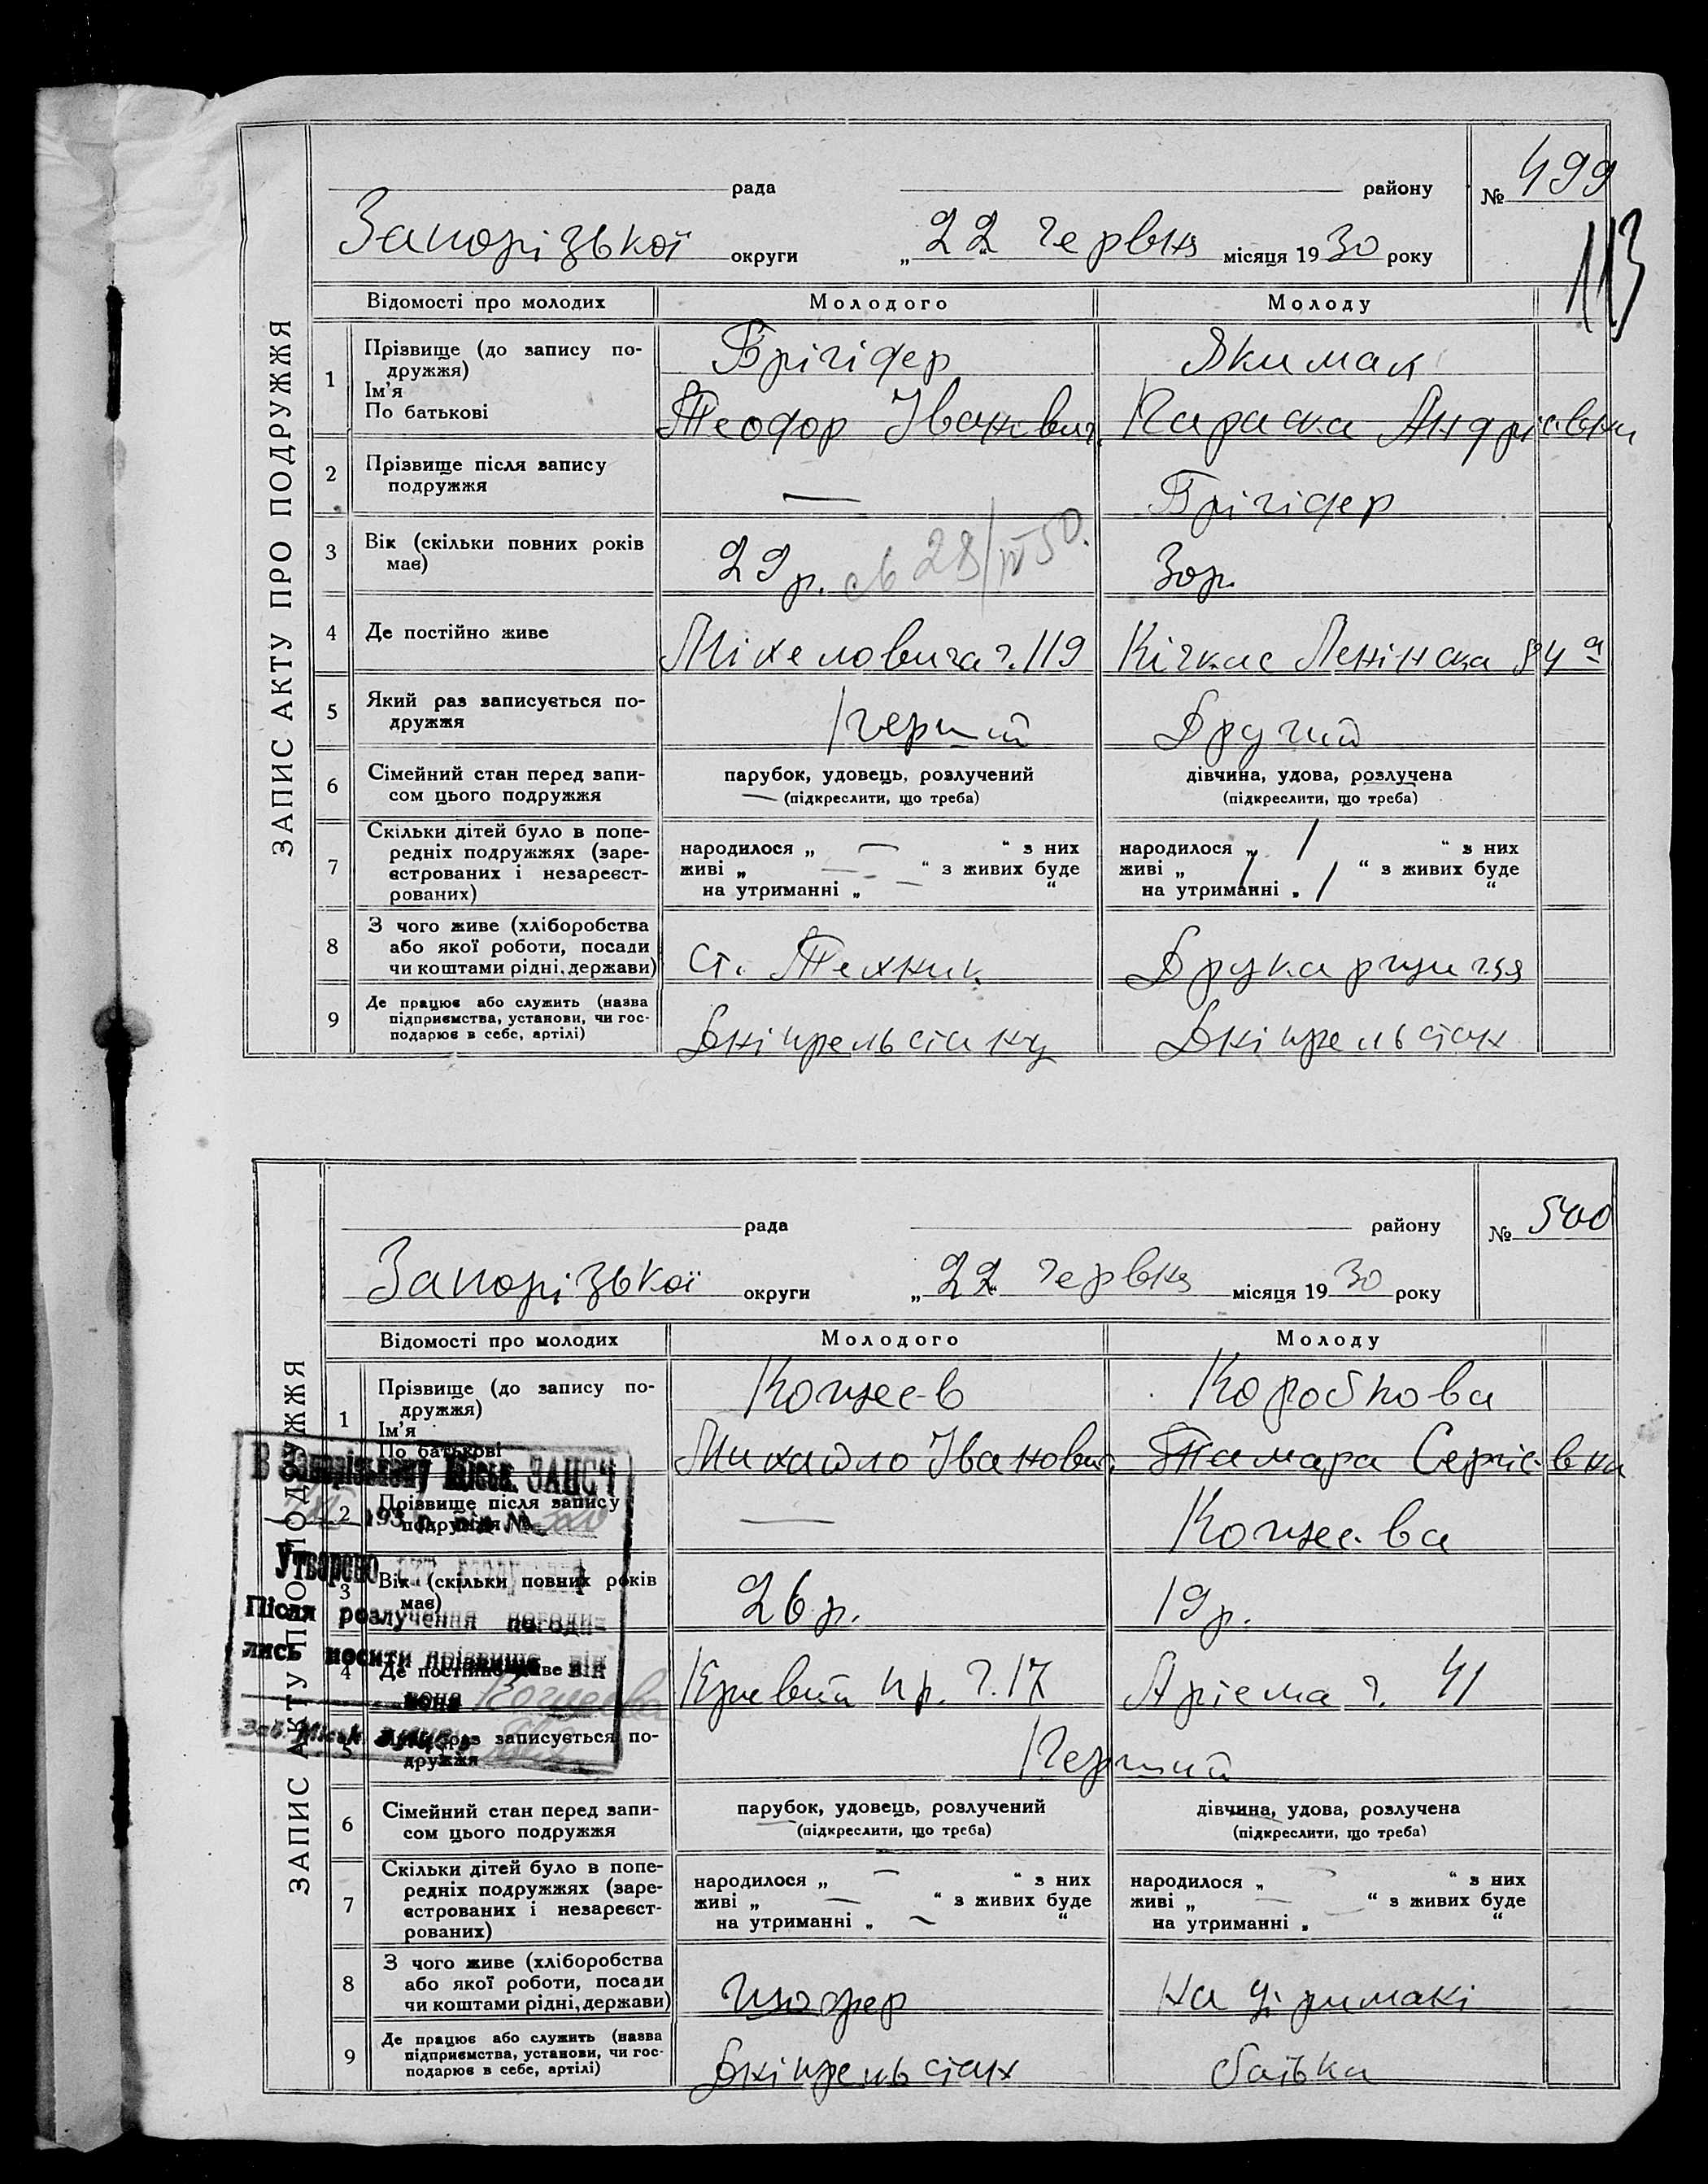 ЗАПИС АКТУ ПРО ПОДРУЖЖЯ
рада району № 499
Запорізької округи „22“ червня місяця 1930 року
113
Відомості про молодих Молодого Молоду
1 Прізвище (до запису по-
дружжя)
Ім’я
По батькові
Брігідер
Теодор Іванович
Якимах
Параска Андріевни
2 Прізвище після запису
подружжя
— Брігідер
3 Вік (скільки повних років
має)
29 р. 30 р.
4 Де постійно живе Міхеловича ч. 119 Кічкас Ленінська 84а
5 Який раз записується по-
дружжя
Перший Другий
6 Сімейний стан перед запи-
сом цього подружжя
парубок, удовець, розлучений
(підкреслити, що треба)
дівчина, удова, розлучена
(підкреслити, що треба)
7 Скільки дітей було в попе-
редніх подружжях (заре-
єстрованих і незареєст-
рованих)
народилося „ — “ з них
живі „ — “ з живих буде
на утриманні „ — “
народилося „ / “ з них
живі „ / “ з живих буде
на утриманні „ / “
8 З чого живе (хліборобства
або якої роботи, посади
чи коштами рідні, держави)
ст. Технік Друкарщиця
9 Де працює або служить (назва
підприємства, установи, чи гос-
подарює в себе, артілі)
Дніпрельстану Дніпрельстан
ЗАПИС АКТУ ПРО ПОДРУЖЖЯ
рада району № 500
Запорізької округи „22“ червня місяця 1930 року
Відомості про молодих Молодого Молоду
1 Прізвище (до запису по-
дружжя)
Ім’я
По батькові
Кощеєв
Михайло Іванович
Коробкова
Тамара Сергієвна
2 Прізвище після запису
подружжя
— Кощеєва
3 Вік (скільки повних років
має)
26 р. 19 р.
4 Де постійно живе пр. ч. 17 Артема ч. 41
5 Який раз записується по-
дружжя
Перший
6 Сімейний стан перед запи-
сом цього подружжя
парубок, удовець, розлучений
(підкреслити, що треба)
дівчина, удова, розлучена
(підкреслити, що треба)
7 Скільки дітей було в попе-
редніх подружжях (заре-
єстрованих і незареєст-
рованих)
народилося „ — “ з них
живі „ — “ з живих буде
на утриманні „ — “
народилося „ — “ з них
живі „ — “ з живих буде
на утриманні „ — “
8 З чого живе (хліборобства
або якої роботи, посади
чи коштами рідні, держави)
шофер на утримані
9 Де працює або служить (назва
підприємства, установи, чи гос-
подарює в себе, артілі)
Дніпрельстан батька
В Запорізькому Міськ. ЗАГСІ
193 р. під №
Утворено
Після розлучення погоди-
лись носити прізвище він
вона
Зав. Міськ.